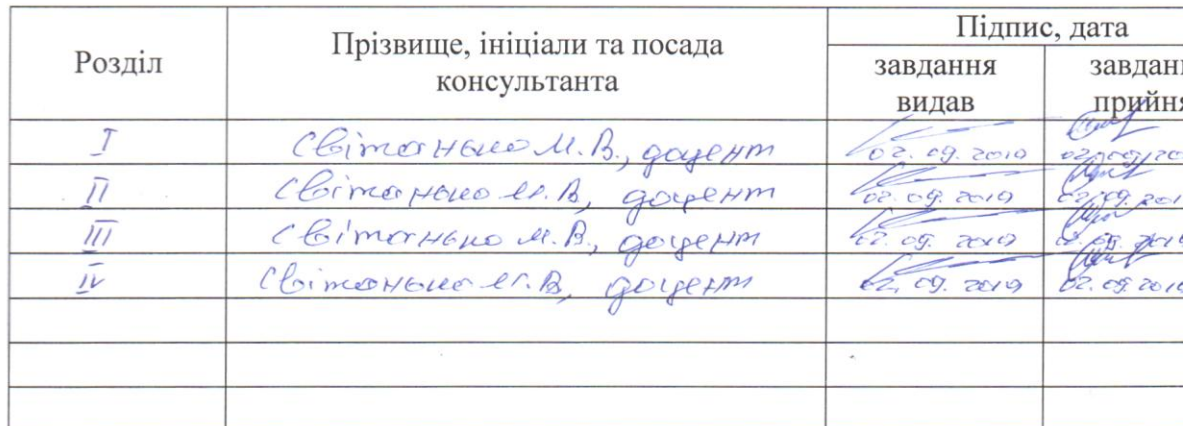 Розділ Прізвище, ініціали та посада консультанта Підпис, дата
завдання видав завдан прийня
I Світанько М.В., доцент 02.09.2019 02.09.20
II Світанько М.В., доцент 02.09.2019 02.09.2019
III Світанько М.В., доцент 02.09.2019 02.09.2019
IV Світанько М.В., доцент 02.09.2019 02.09.2019